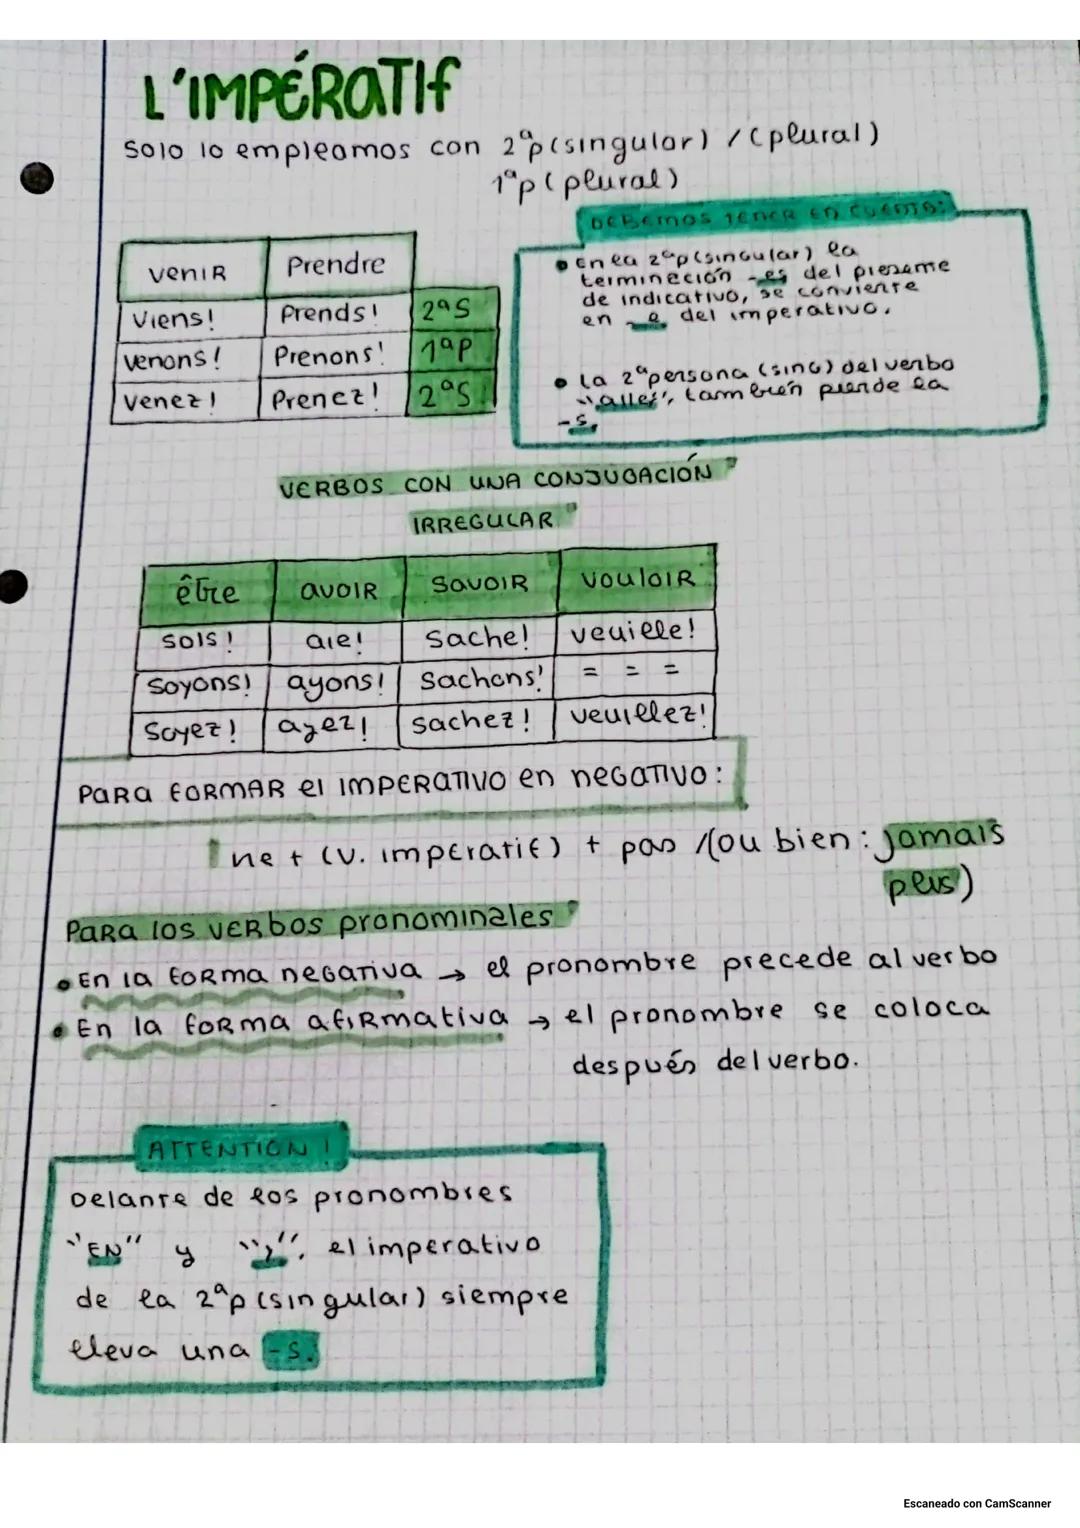 L'IMPÉRATIF
Solo lo empleamos con 2ªp(singular) / (plural)
1ªp (plural)
DEBEMOS TENER EN CUENTA:
• En la 2ªp(singular) la
terminación -es del presente
de indicativo, se convierte
en -e del imperativo.
• La 2ªpersona (sing) del verbo
"aller", también pierde la
-s.
VENIR Prendre
Viens! Prends! 2ªS
Venons! Prenons! 1ªP
Venez! Prenez! 2ªS
VERBOS CON UNA CONJUGACIÓN
IRREGULAR
être AVOIR SAVOIR VOULOIR
Sois! aie! Sache! veuille!
Soyons! ayons! Sachons! = = =
Soyez! ayez! sachez! veuillez!
PARA FORMAR el IMPERATIVO en NEGATIVO:
ne + (v. imperatif) + pas /(ou bien: jamais
plus)
PARA los VERBOS pronominales
• En la forma negativa → el pronombre precede al verbo
• En la forma afirmativa → el pronombre se coloca
después del verbo.
ATTENTION !
Delante de los pronombres
"EN" y "y", el imperativo
de la 2ªp(singular) siempre
lleva una -s.
Escaneado con CamScanner